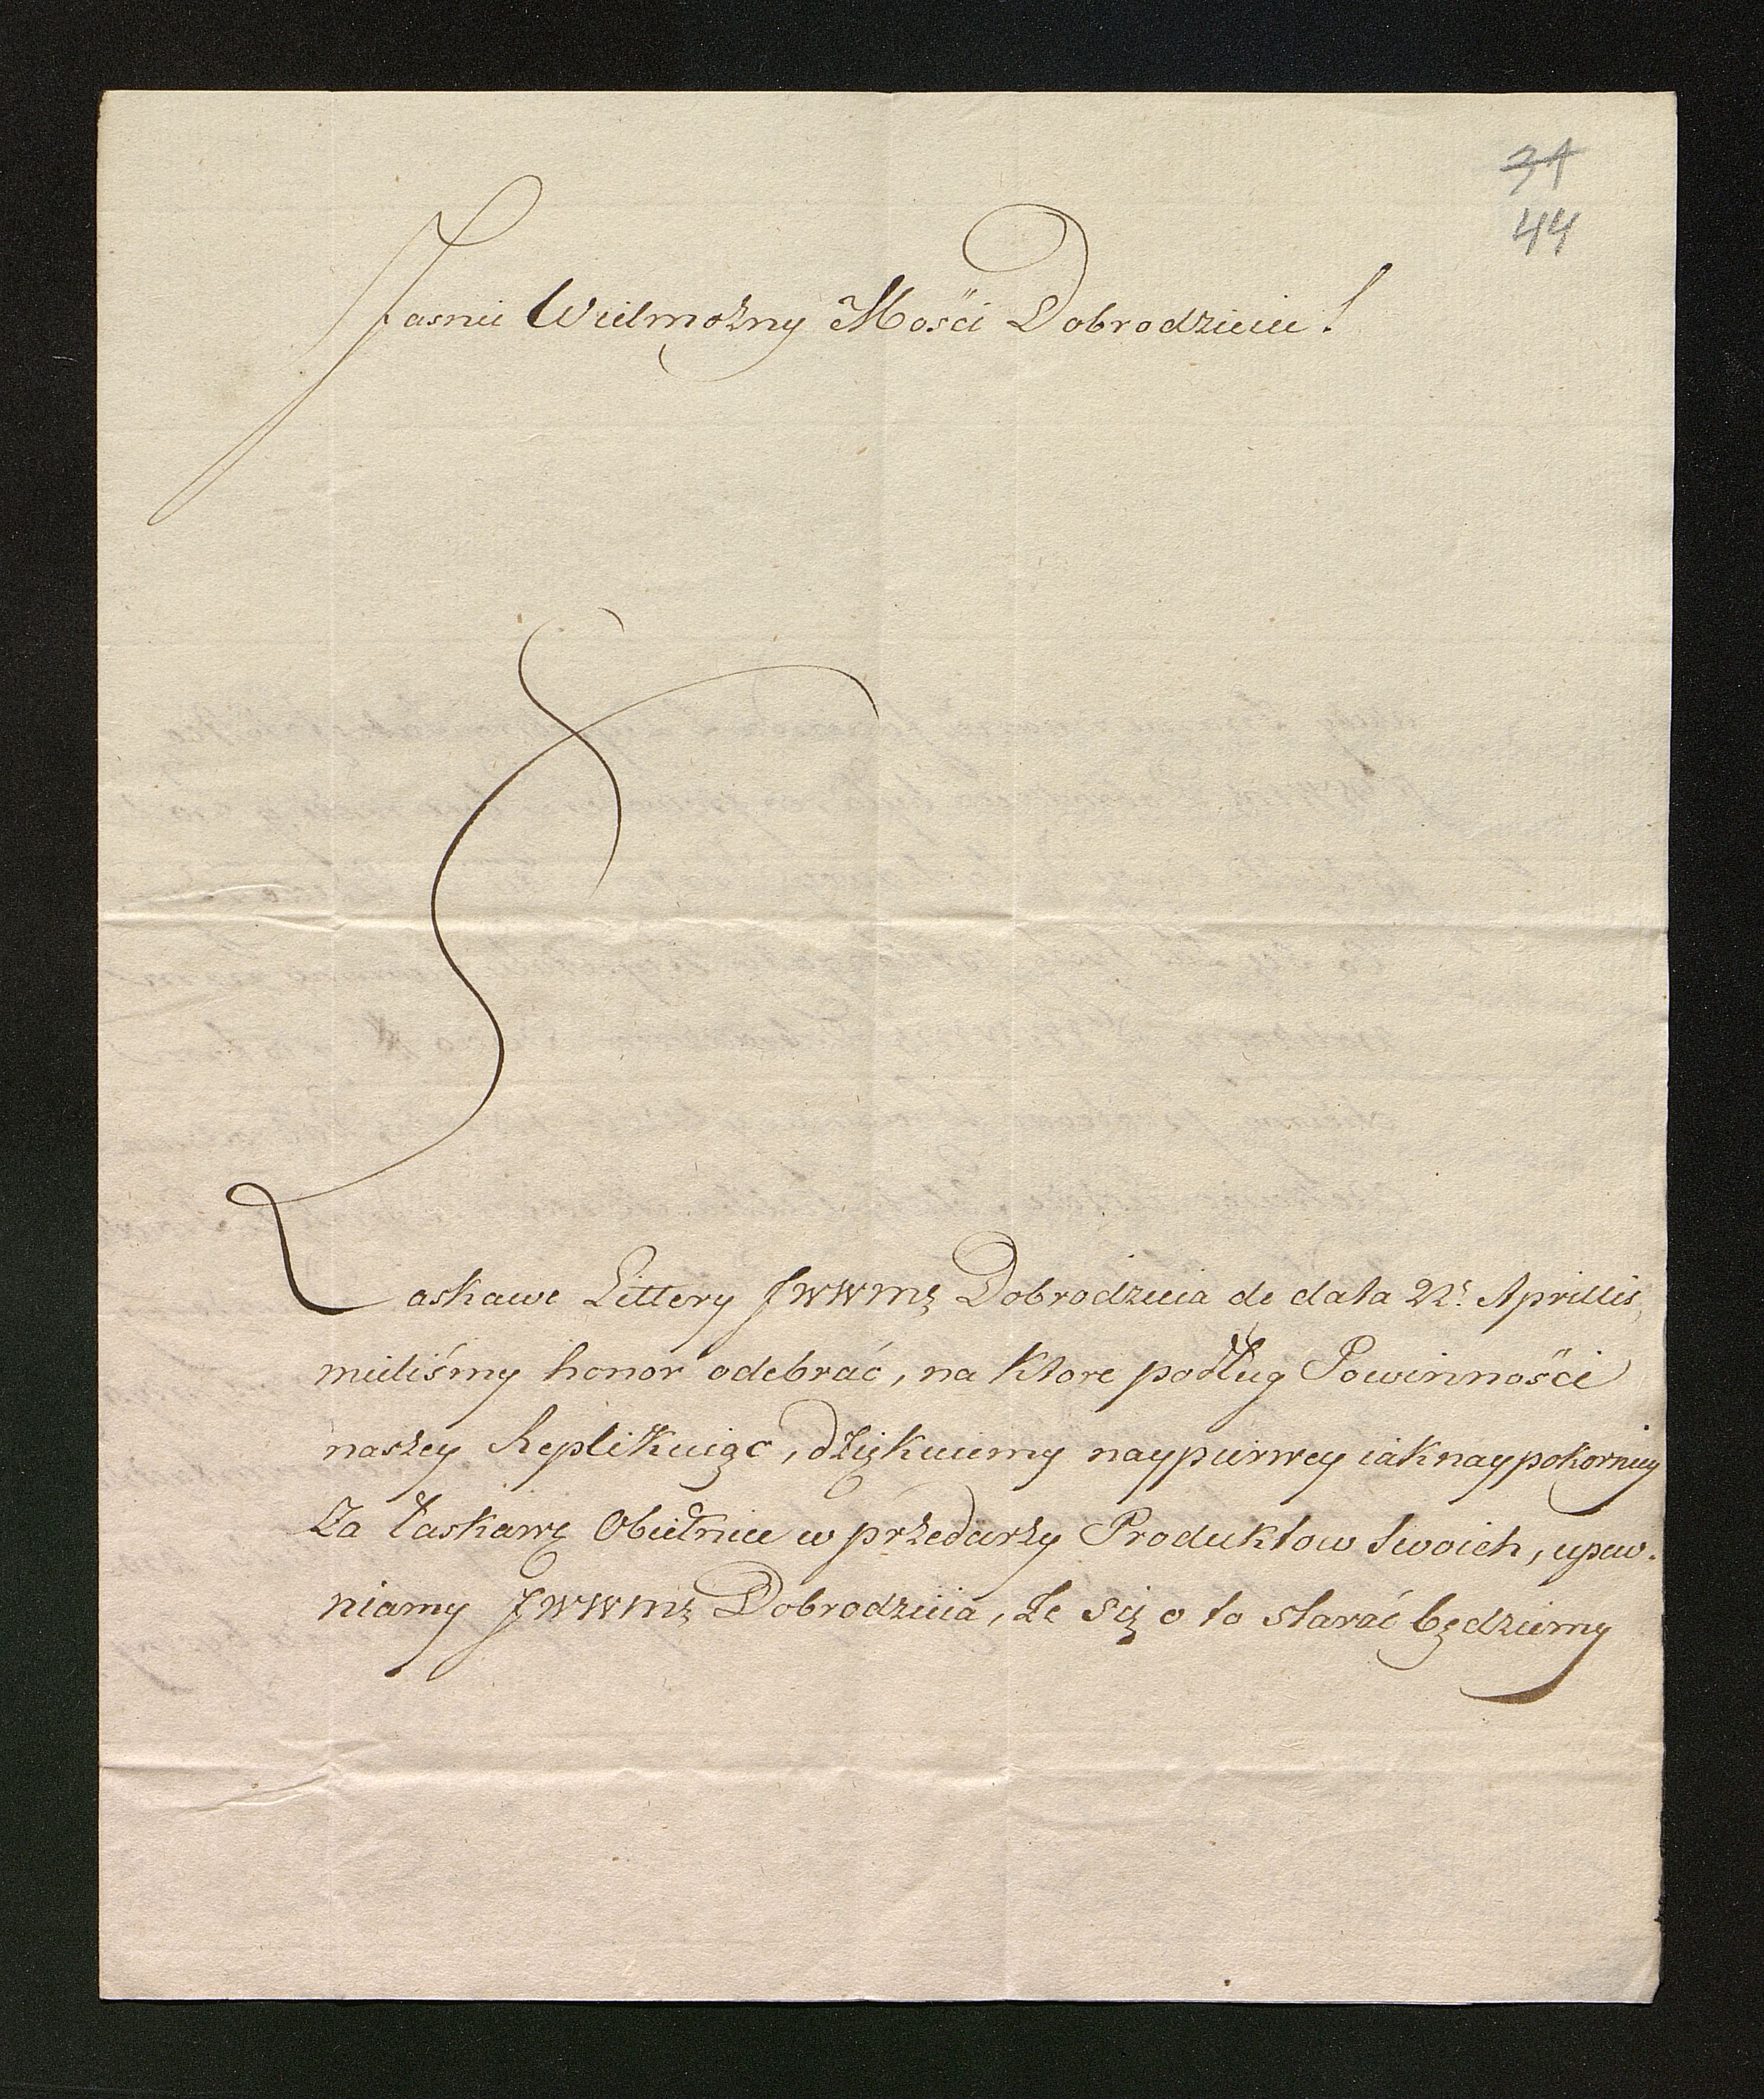 34
44
Jasnie Wielmożny Mości Dobrodzieiu!
Laskawe Littery JWWMę Dobrodzieia de data 22. Aprillis,
mieliśmy honor odebrać, na ktore podług Powinności
naszey Replikuiąc, dziękuiemy naypierwey iak naypokorniey
Za łaskawę Obietnice w przedarzy Produktow Swoich, upew-
niamy JWWMę Dobrodzieia, że się o to starać będziemy